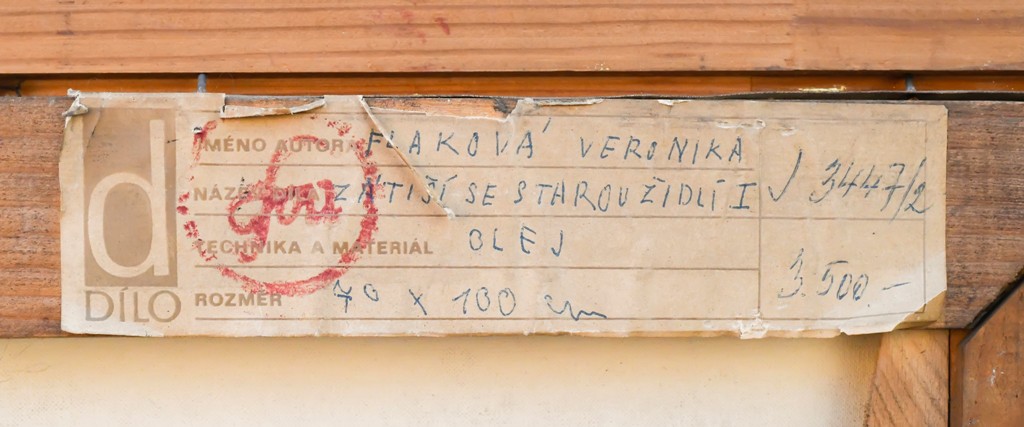 d
DÍLO
JMÉNO AUTORA FLAKOVÁ VERONIKA
NÁZEV DÍLA ZÁTIŠÍ SE STAROU ŽIDLÍ I
TECHNIKA A MATERIÁL OLEJ
ROZMĚR 70 x 100 cm
3447/2
3.500.-